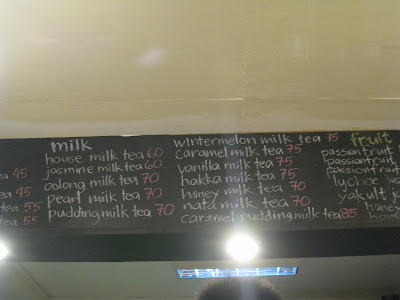 45
45
tea 55
tea 55
milk
house milk tea 60
jasmine milk tea 60
oolong milk tea 70
pearl milk tea 70
pudding milk tea 70
wintermelon milk tea 75
caramel milk tea 75
vanilla milk tea 75
hakka milk tea 75
honey milk tea 70
nata milk tea 70
caramel pudding milk tea 85
fruit
passionfruit
passionfruit
passionfruit
lychee
yakult